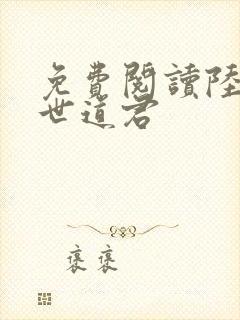 免費閱讀陸
世道君
裹裹